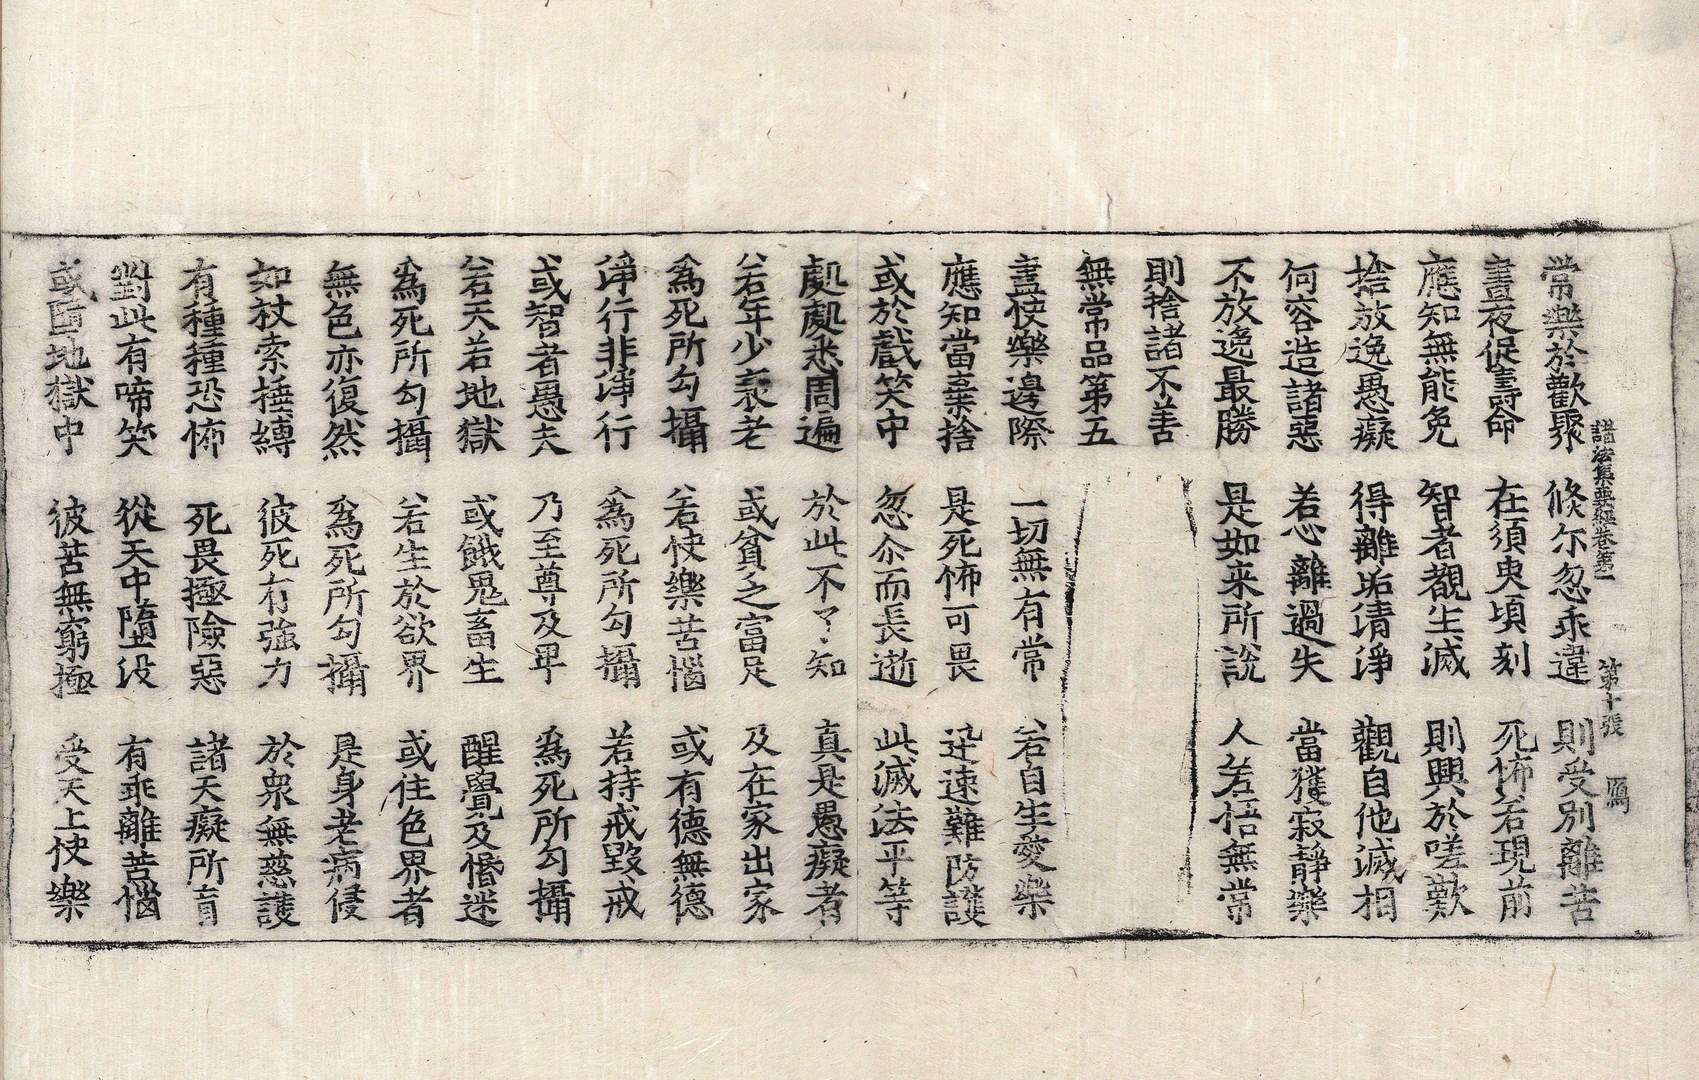 諸法集要經卷第一 第十張 鴈
常樂於歡聚 倐尒忽乖違 則受別離苦
晝夜促壽命 在須臾頃刻 死怖若現前
應知無能免 智者觀生滅 則興於嗟歎
捨放逸愚癡 得離垢清淨 觀自他滅相
何容造諸惡 若心離過失 當獲寂靜樂
不放逸最勝 是如來所說 人若悟無常
則捨諸不善
無常品第五
盡快樂邊際 一切無有常 若自生愛樂
應知當棄捨 是死怖可畏 迅速難防護
或於戲笑中 忽尒而長逝 此滅法平等
處處悉周遍 於此不了知 真是愚癡者
若年少衰老 或貧乏富足 及在家出家
為死所勾攝 若快樂苦惱 或有德無德
淨行非淨行 為死所勾攝 若持戒毀戒
或智者愚夫 乃至尊及卑 為死所勾攝
若天若地獄 或餓鬼畜生 醒覺及惛迷
為死所勾攝 若生於欲界 或住色界者
無色亦復然 為死所勾攝 是身老病侵
如杖索捶縛 彼死有強力 於衆無慈護
有種種恐怖 死畏極險惡 諸天癡所盲
對此有啼笑 從天中墮没 有乖離苦惱
或墮地獄中 彼苦無窮極 受天上快樂